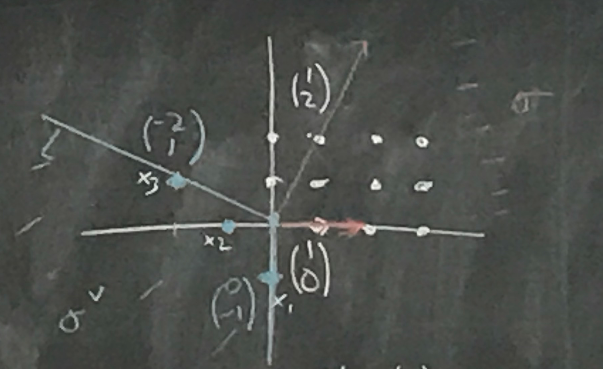 (1 2)
σ
(-2 1)
x₃
x₂
(1 0)
(0 -1)
x₁
σ^∨